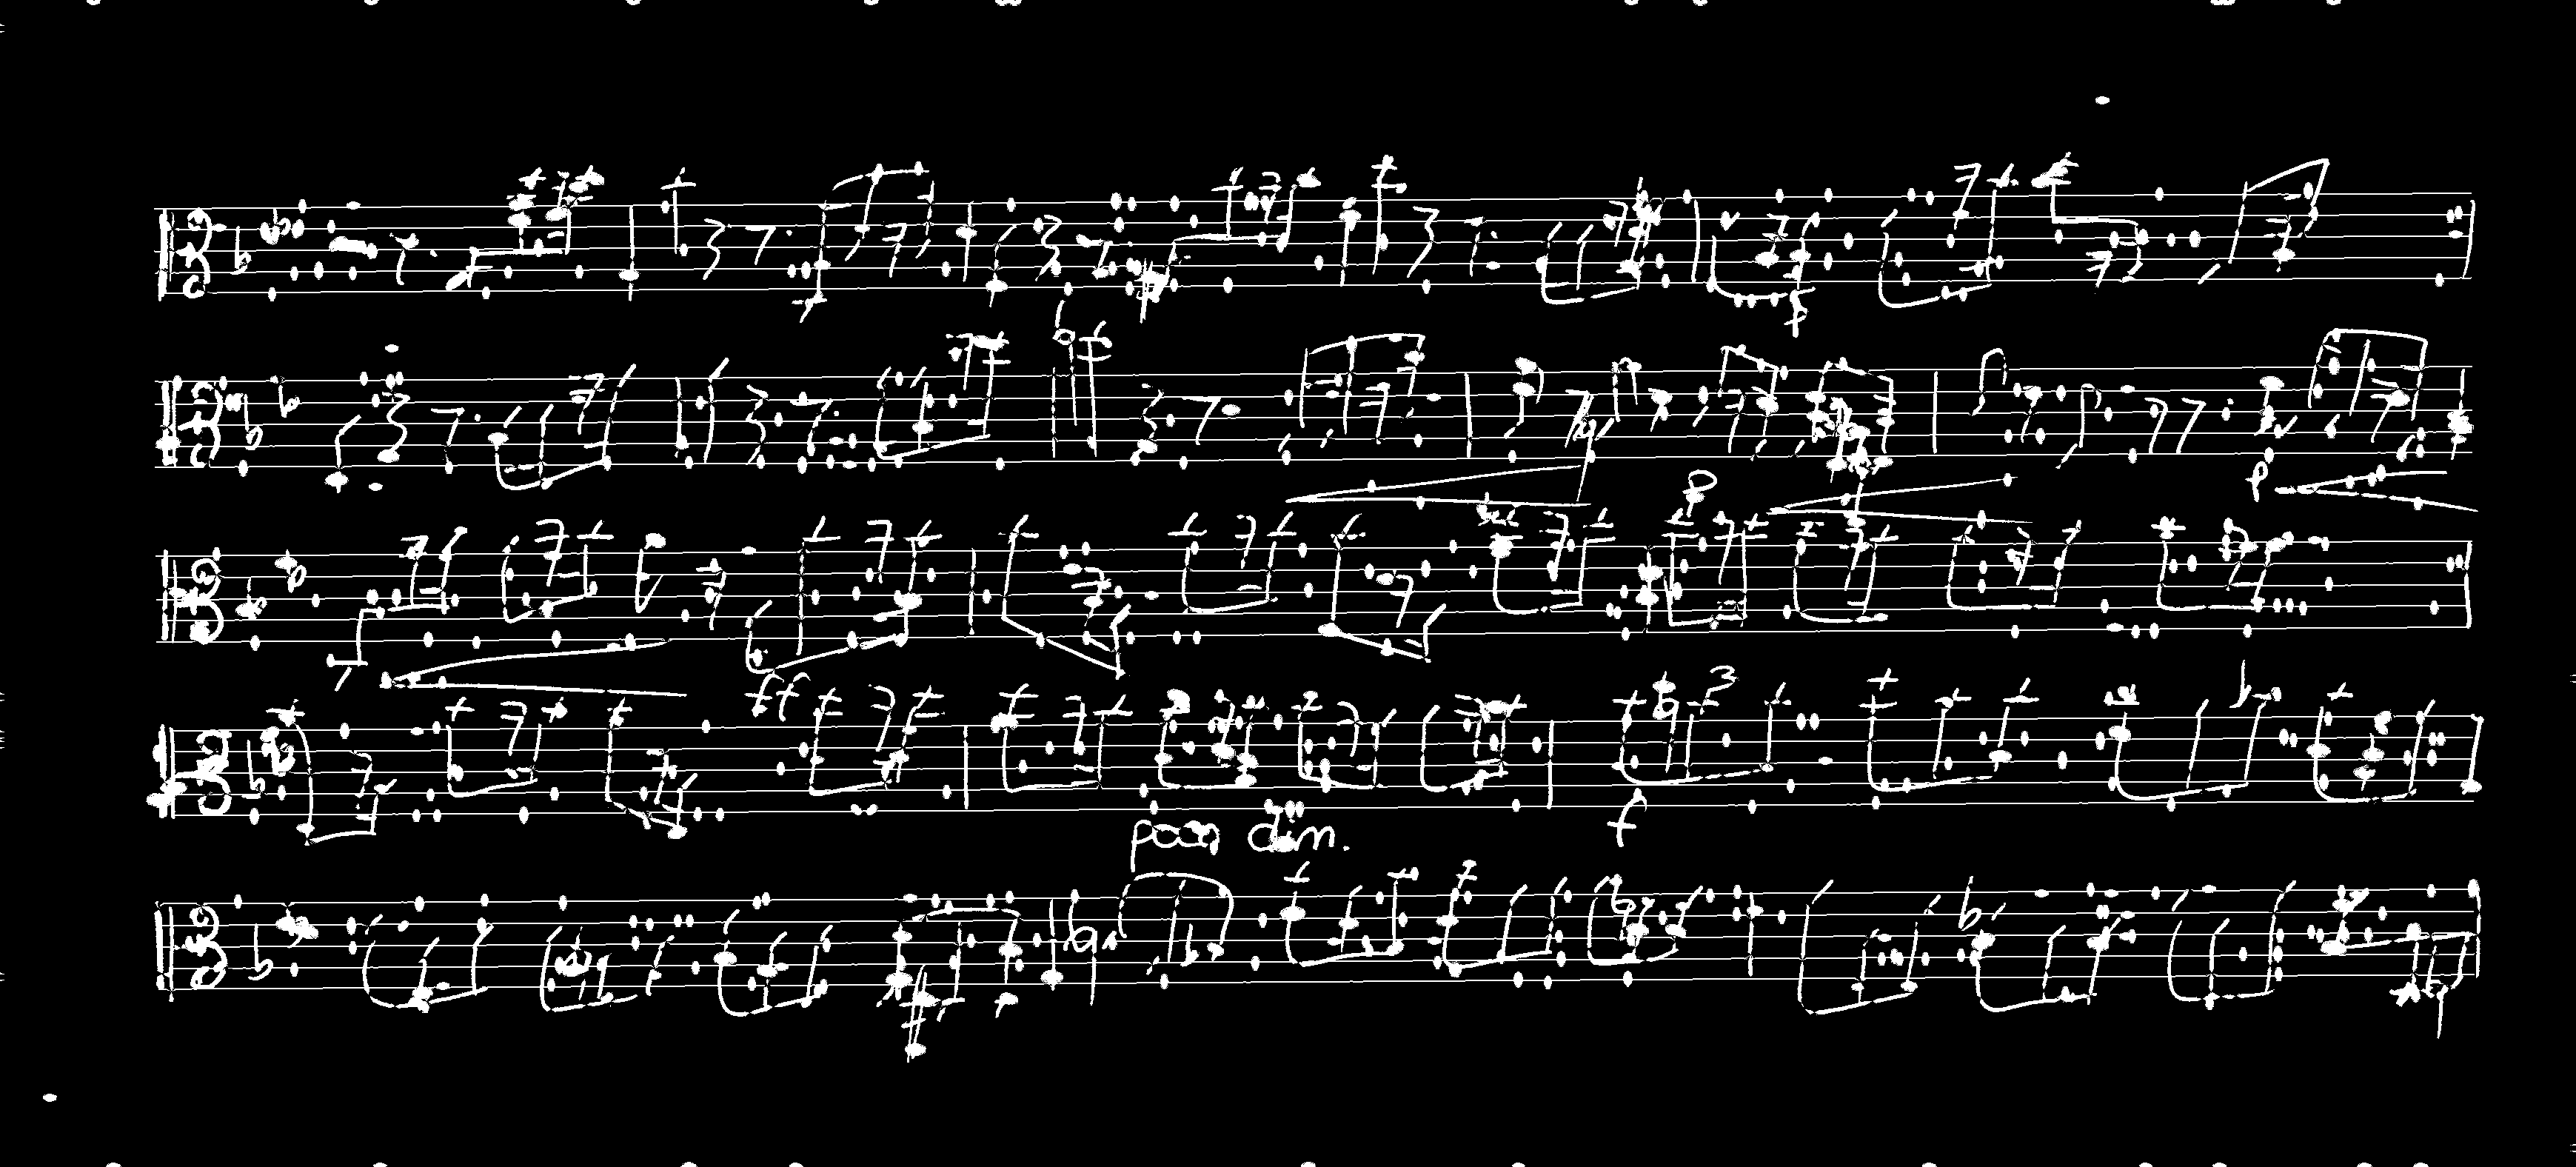 f
p
p
ff
poco dim.
f